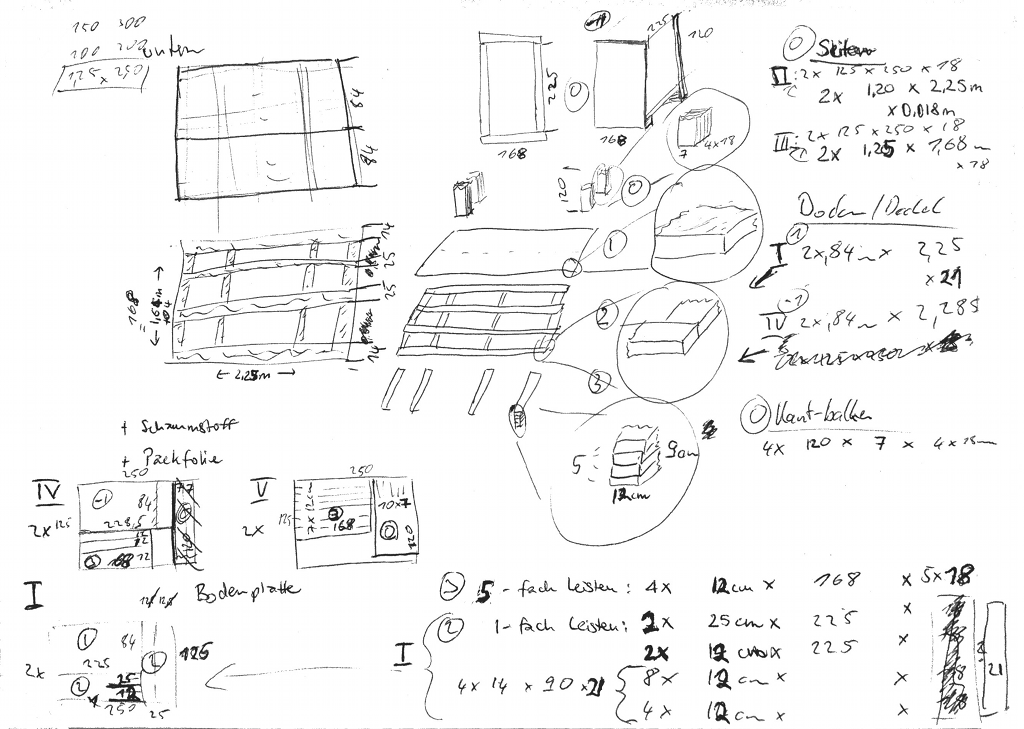 150 300
100 200
125 x 250
unten
84
84
225
168
225
120
168
7 4x18
120
0
0
0 Seiten
II: 2x 125 x 250 x 18
2x 1,20 x 2,25m
x 0,018m
III: 2x 125 x 250 x 18
2x 1,25 x 1,68m
x 18
Boden/Deckel
1
I 2x,84m x 2,25
x 21
-1
IV 2x,84m x 2,285
0 Kant-balken
4x 120 x 7 x 4x18mm
14
25
25
14
168
2,25m
1
2
3
5
9cm
12cm
+ Schaumstoff
+ Packfolie
IV
250
2x 125
-1
84
228,5
12
12
3 168 12
V
250
2x
125
7x12cm
3
168
10x7
0
120
I
Bodenplatte
2x
1 84
225
2
25
12
250
2
25
125
3 5-fach Leisten: 4x 12cm x 168 x 5x18
2 1-fach Leisten: 2x 25cm x 225 x
I
2x 12cm x 225 x
4 x 14 x 90 x 21
8x 12cm x x
4x 12cm x x
21